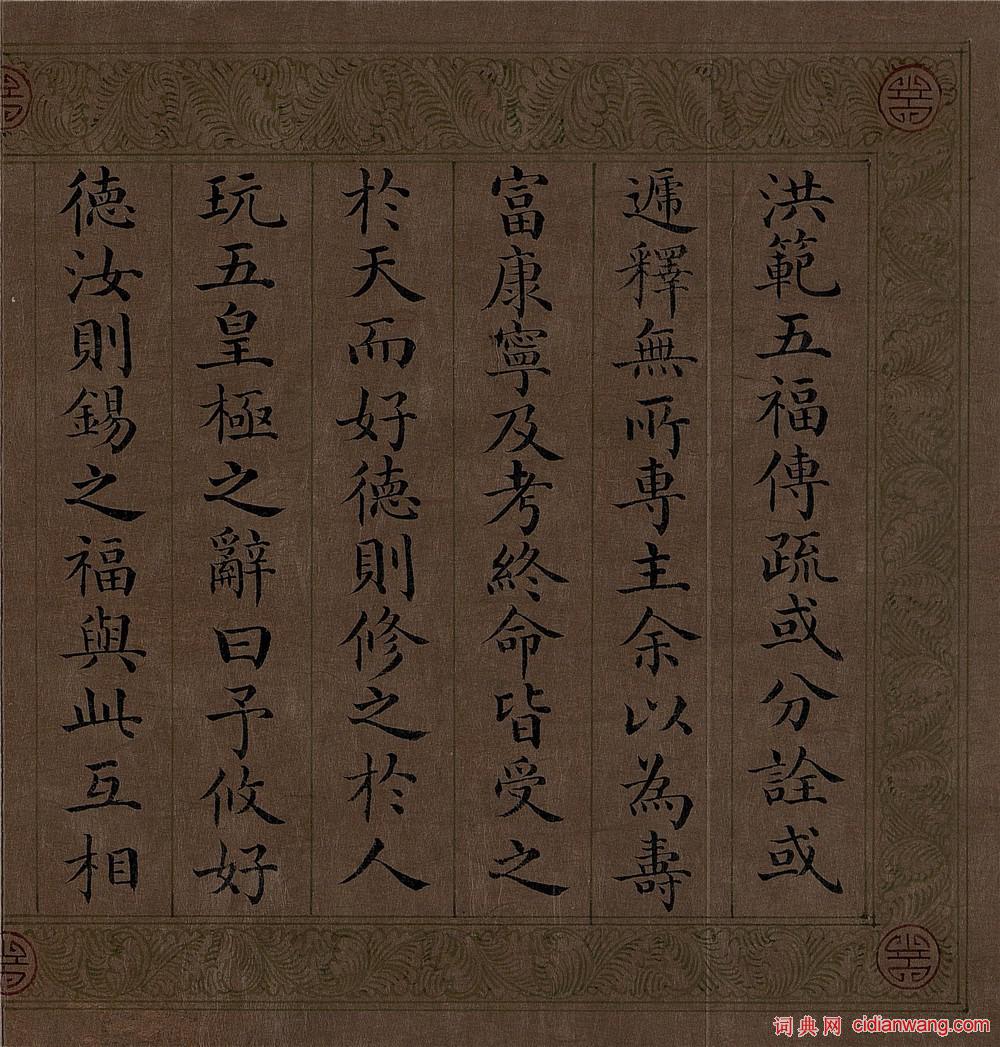 洪範五福傳疏或分詮或
遞釋無所專主余以為壽
富康寧及考終命皆受之
於天而好德則修之於人
玩五皇極之辭曰予攸好
德汝則錫之福與此互相
词典网 cidianwang.com